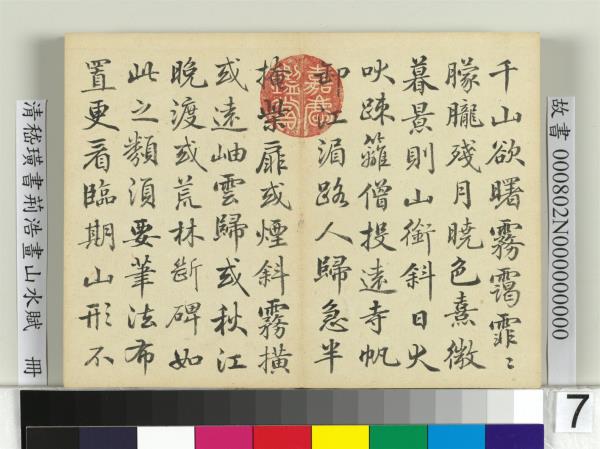 故書 000802N000000000
千山欲曙霧靄霏〻
朦朧殘月曉色熹微
暮景則山銜斜日犬
吠疎籬僧投遠寺帆
卸江湄路人歸急半
嘉慶
掩柴扉或煙斜霧橫
或遠岫雲歸或秋江
晚渡或荒林斷碑如
此之類須要筆法布
置更看臨期山形不
清嵇璜書荊浩畫山水賦 冊
7